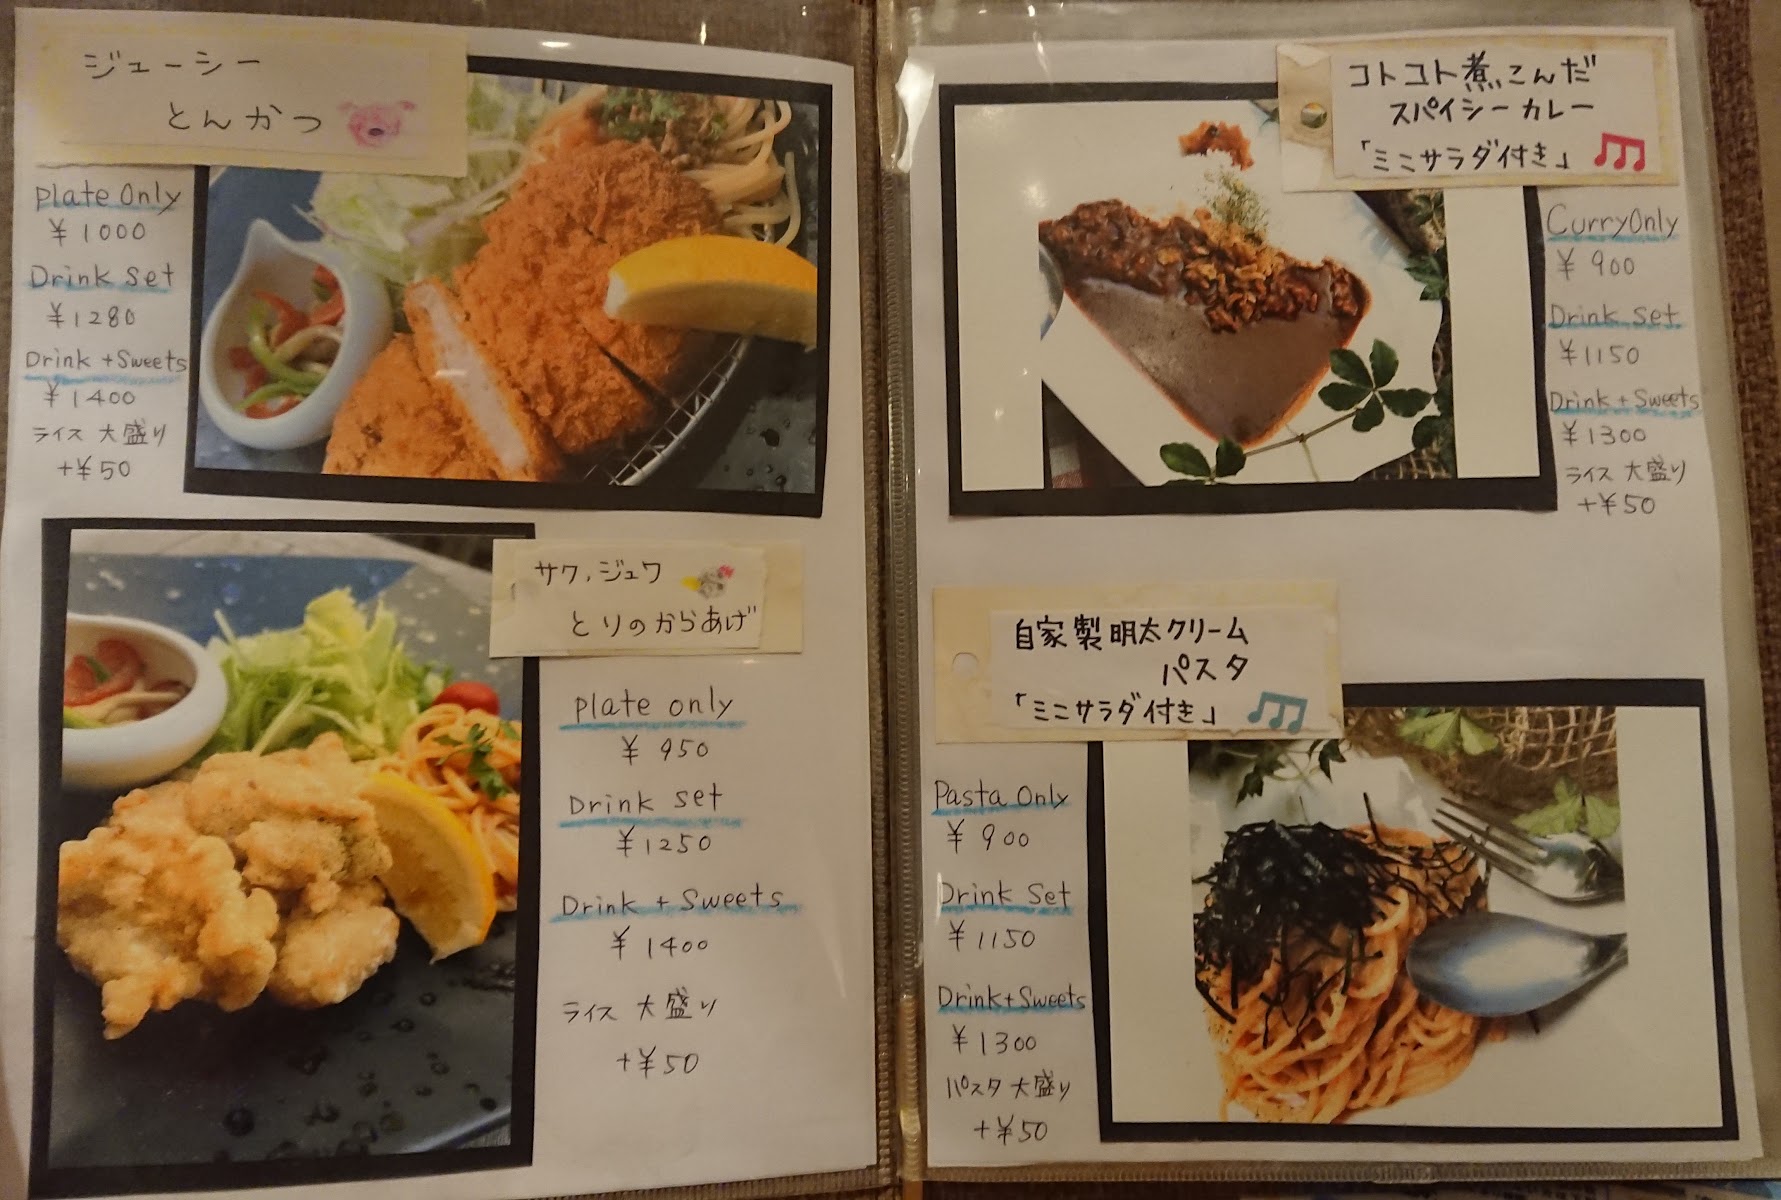 ジューシー
とんかつ
Plate Only
¥1000
Drink Set
¥1280
Drink +Sweets
¥1400
ライス 大盛り
+¥50
サク,ジュワ
とりのからあげ
Plate only
¥950
Drink set
¥1250
Drink + Sweets
¥1400
ライス 大盛り
+¥50
コトコト煮こんだ
スパイシーカレー
「ミニサラダ付き」
Curry Only
¥900
Drink Set
¥1150
Drink + Sweets
¥1300
ライス 大盛り
+¥50
自家製明太クリーム
パスタ
「ミニサラダ付き」
Pasta Only
¥900
Drink Set
¥1150
Drink+Sweets
¥1300
パスタ 大盛り
+¥50